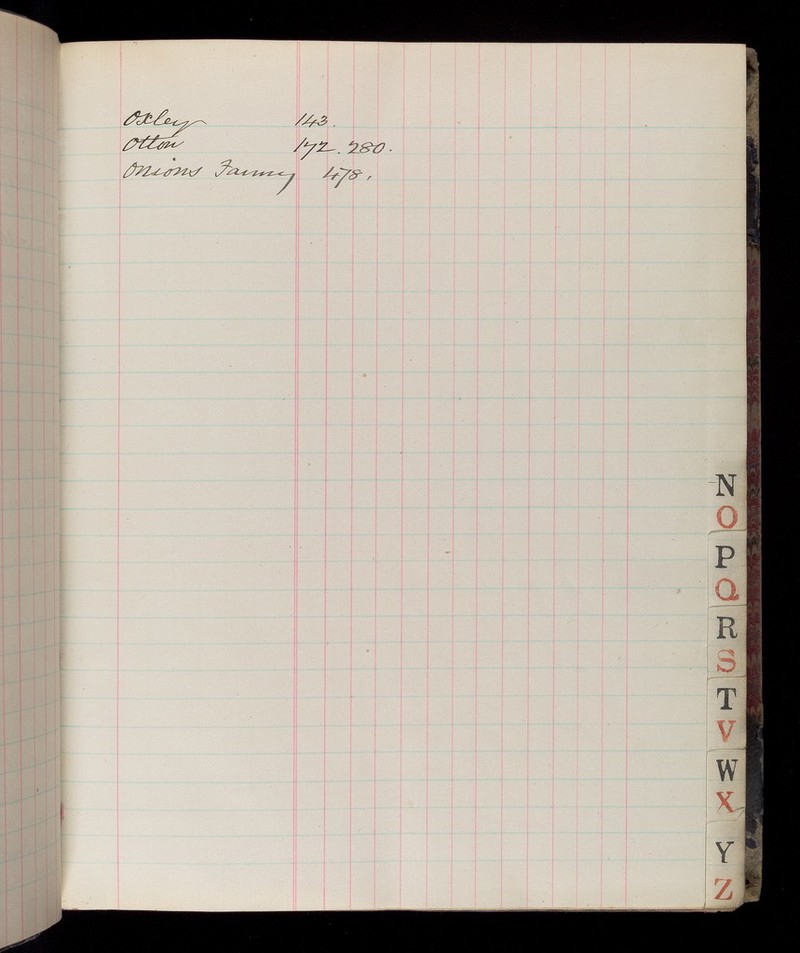 Oxley 143.
Otton 172. 280.
Onions Fanny 478.
N
O
P
Q
R
S
T
V
W
X
Y
Z